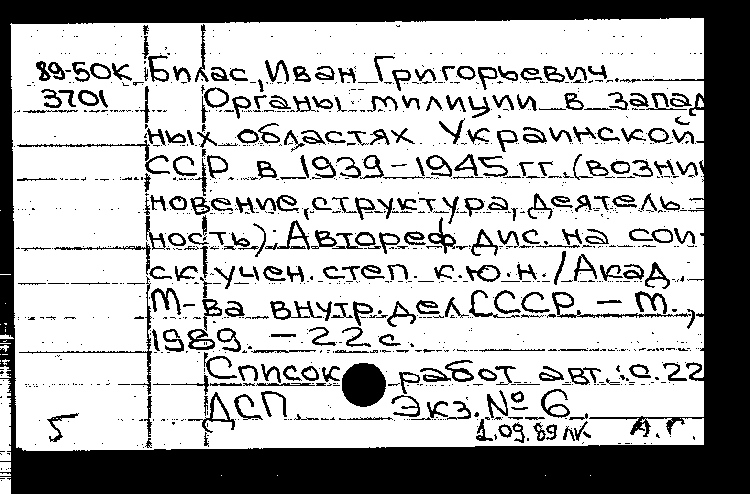 89-5ОК Билас, Иван Григорьевич
3701 Органы милиции в запад
ных областях Украинской
ССР в 1939-1945 гг. (возник
новение, структура, деятель-
ность): Автореф. дис. на сои-
ск. учен. степ. к.ю.н. / Акад.
М-ва внутр. дел СССР. - М.,
1989. - 22 с.
Список работ авт.: с. 22
ДСП. Экз. № 6.
5 1.09.89 лк А.Г.